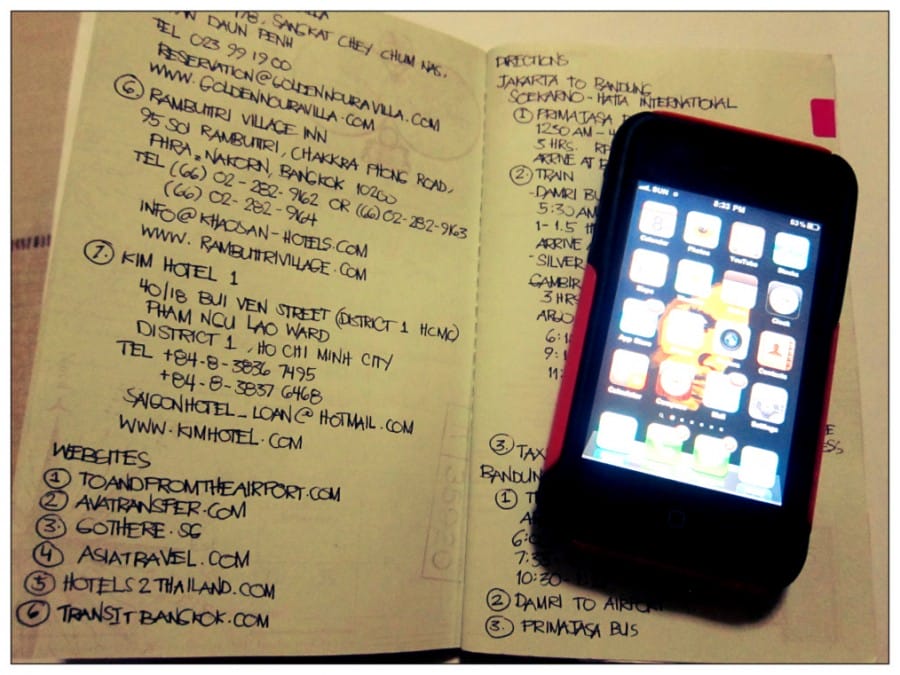 178, SANGKAT CHEY CHUM NAS,
DAUN PENH
TEL 023 99 19 00
RESERVATION@GOLDENNOURAVILLA.COM
WWW. GOLDENNOURAVILLA.COM
6. RAMBUTTRI VILLAGE INN
95 SOI RAMBUTTRI, CHAKKRA PHONG ROAD,
PHRA-NAKORN, BANGKOK 10200
TEL (66) 02-282-9162 OR (66) 02-282-9163
(66) 02-282-9164
INFO@KHAOSAN-HOTELS.COM
WWW. RAMBUTTRIVILLAGE.COM
7. KIM HOTEL 1
40/18 BUI VEN STREET (DISTRICT 1 HCMC)
PHAM NGU LAO WARD
DISTRICT 1, HO CHI MINH CITY
TEL +84-8-3836 7495
+84-8-3837 6468
SAIGONHOTEL_LOAN@HOTMAIL.COM
WWW.KIMHOTEL.COM
WEBSITES
1 TOANDFROMTHEAIRPORT.COM
2 AVATRANSFER.COM
3. GOTHERE.SG
4 ASIATRAVEL.COM
5 HOTELS2THAILAND.COM
6 TRANSITBANGKOK.COM
DIRECTIONS
JAKARTA TO BANDUNG
SOEKARNO-HATTA INTERNATIONAL
1 PRIMAJASA
1230 AM -
3 HRS.
ARRIVE AT
2. TRAIN
-DAMRI BU
5:30 AM
1-1.5 H
ARRIVE
-SILVER
GAMBIR
3 HRS
ARGO
6:
9:
11:
3. TAX
BANDUNG
1
6:0
7:3
10:30-
2 DAMRI TO AIRPORT
3. PRIMAJASA BUS
SUN
8:33 PM
93%
Calendar Photos YouTube Stocks
Maps Clock
App Store Contacts
Calculator Mail Settings